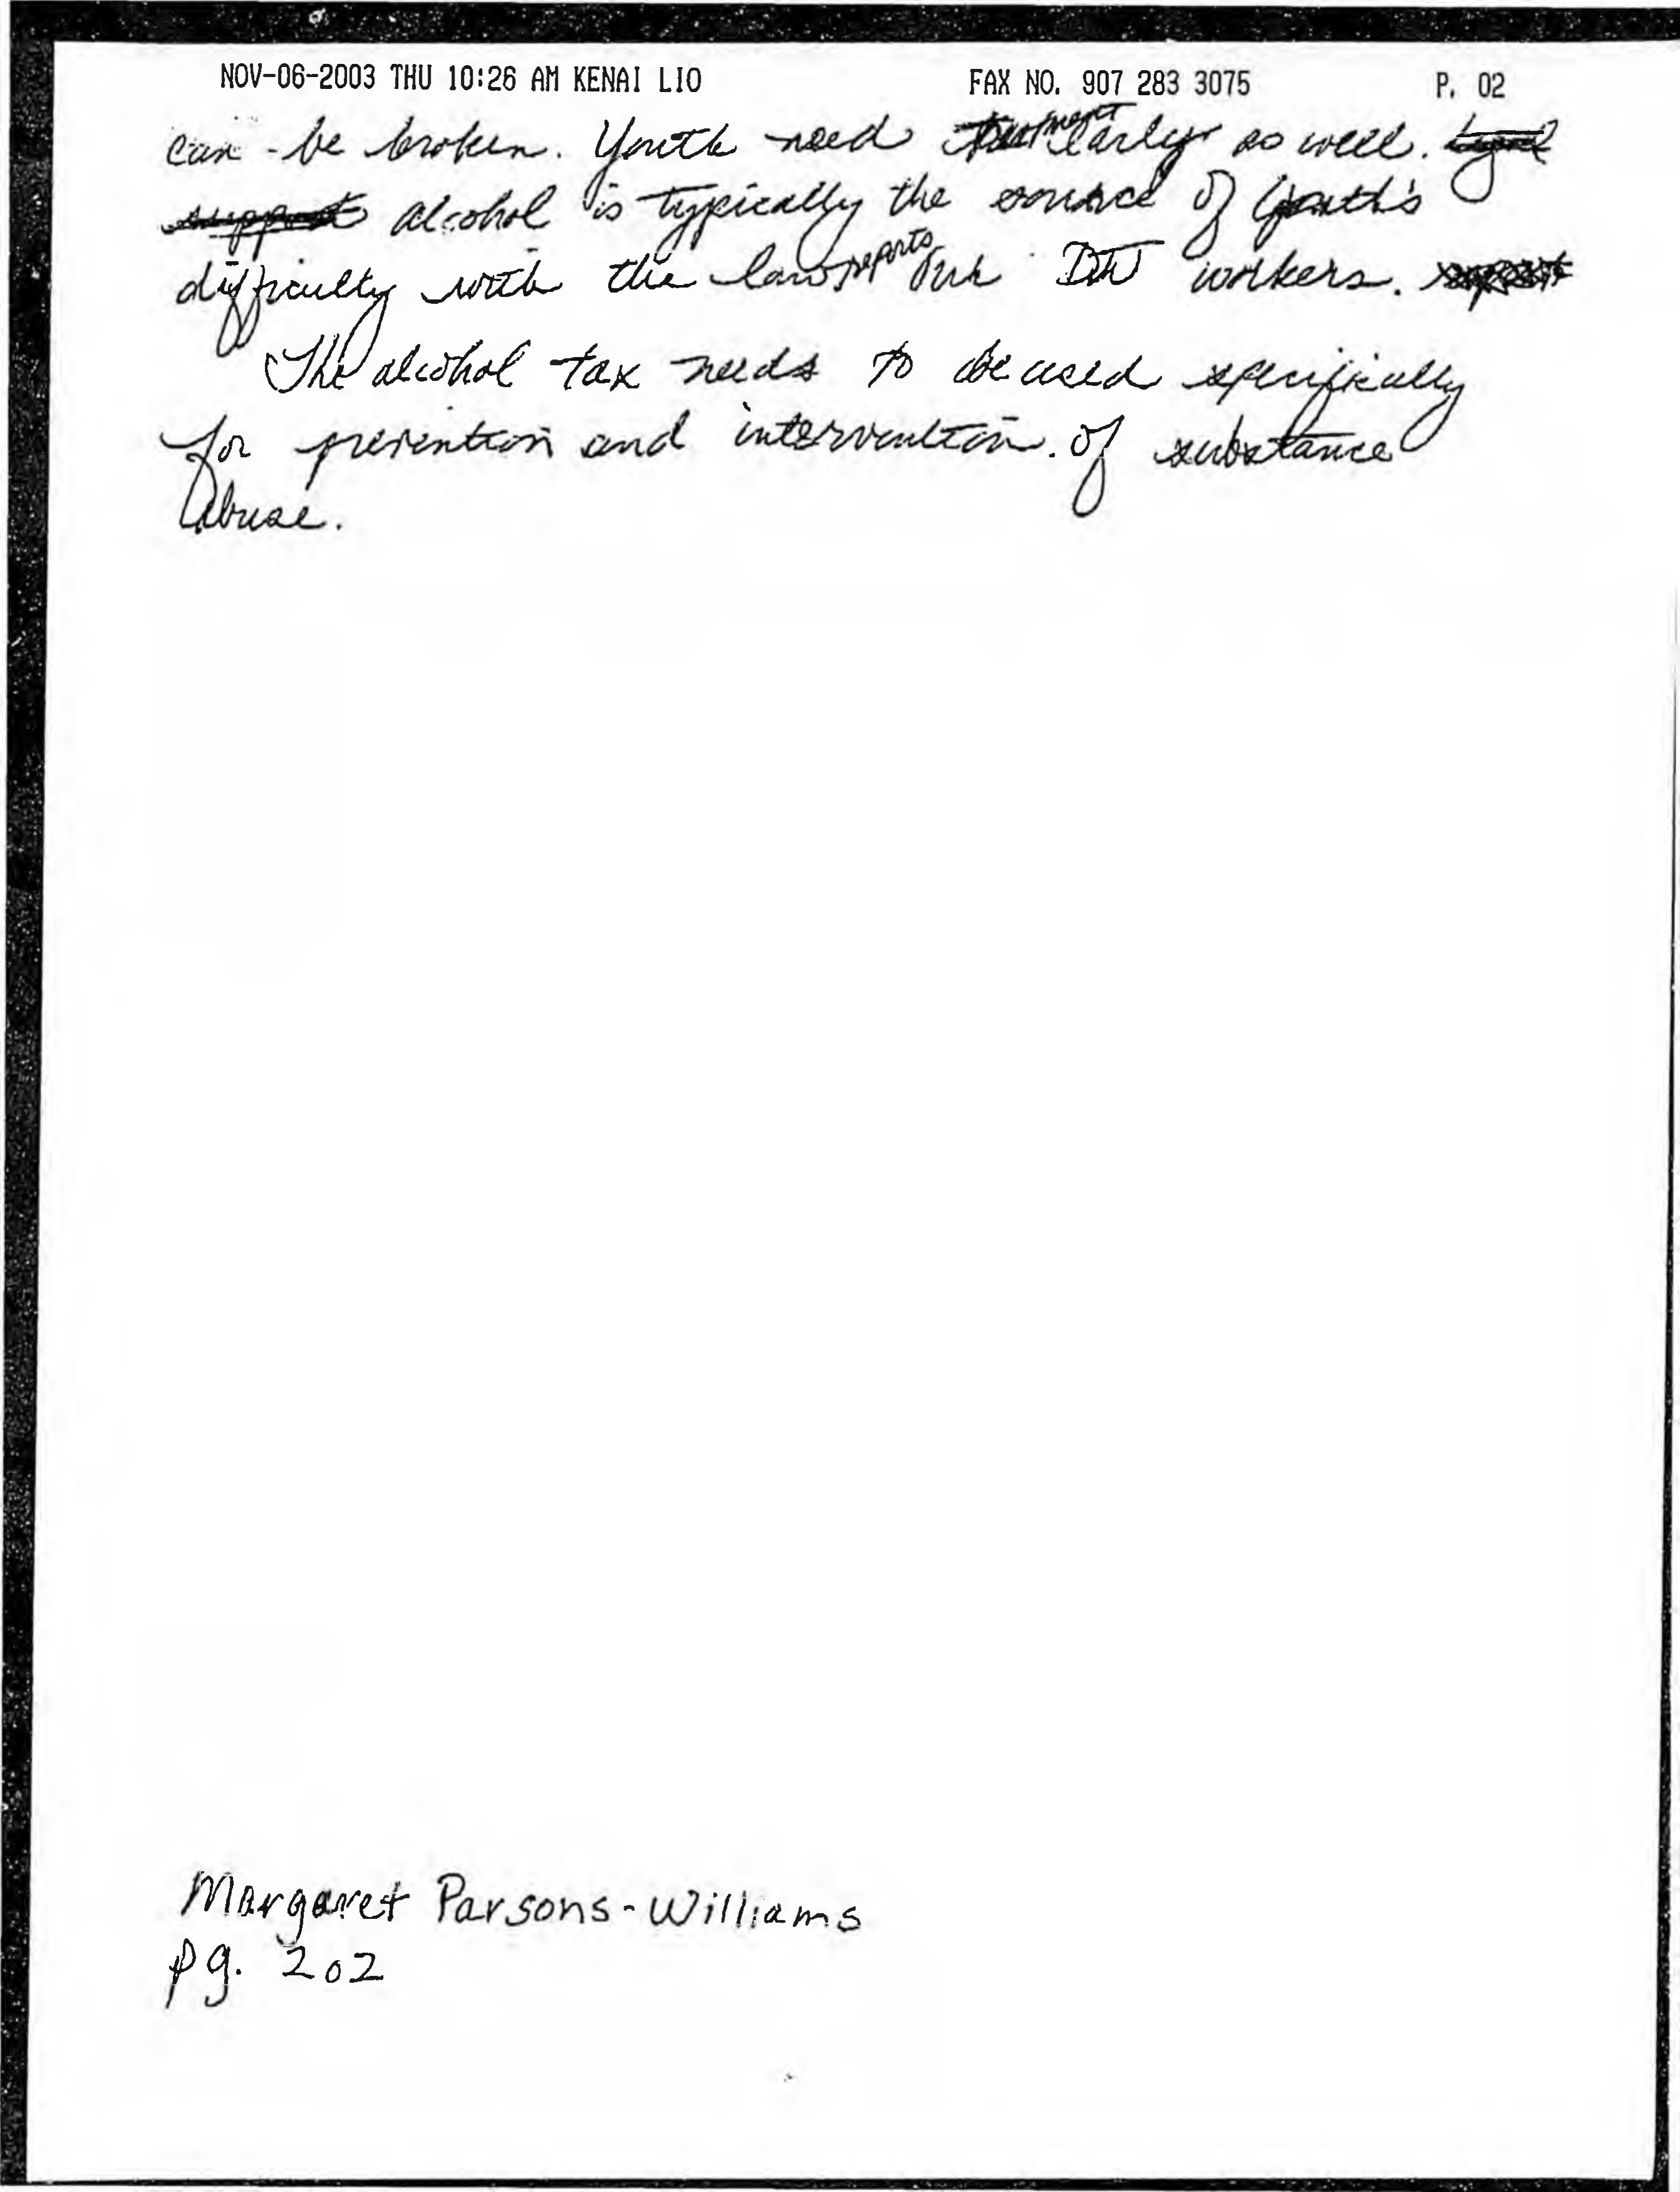 NOV-06-2003 THU 10:26 AM KENAI LIO FAX NO. 907 283 3075 P. 02
can be broken. Youth need treatment early as well.
support alcohol is typically the source of Youth's
difficulty with the law reports our workers.
The alcohol tax needs to be used specifically
for prevention and intervention of substance
Abuse.
Margaret Parsons-Williams
pg. 202